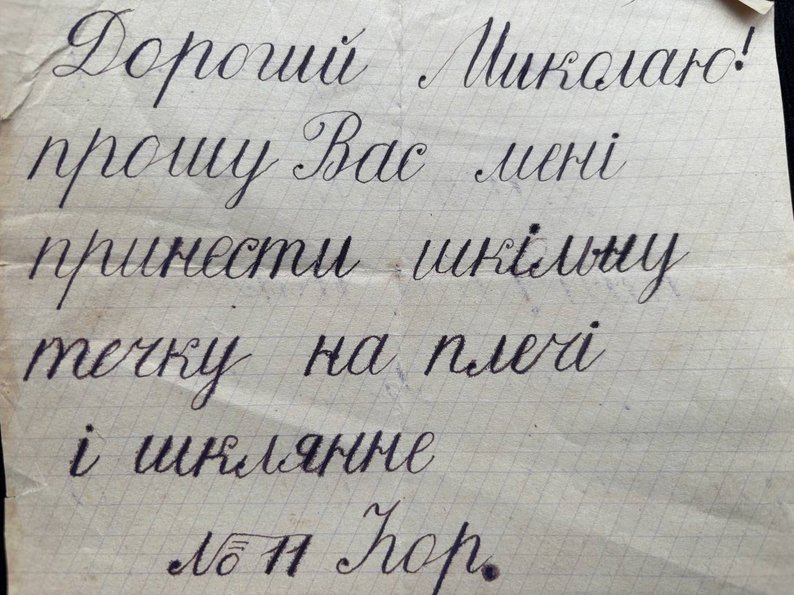 Дорогий Миколаю!
прошу Вас мені
принести шкільну
течку на плечі
і шклянне
№ 11 Кор.